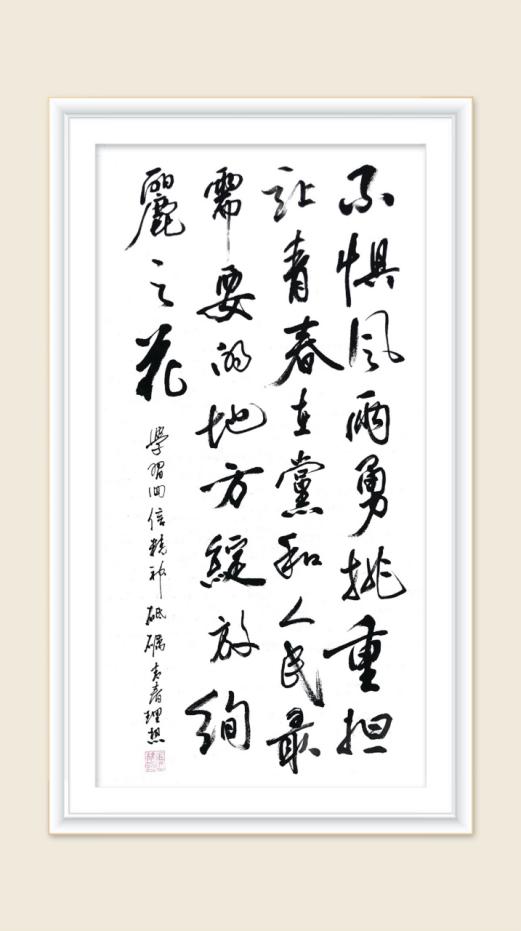 不惧风雨勇挑重担
让青春在黨和人民最
需要的地方綻放絢
麗之花
學習回信精神 砥礪青春理想